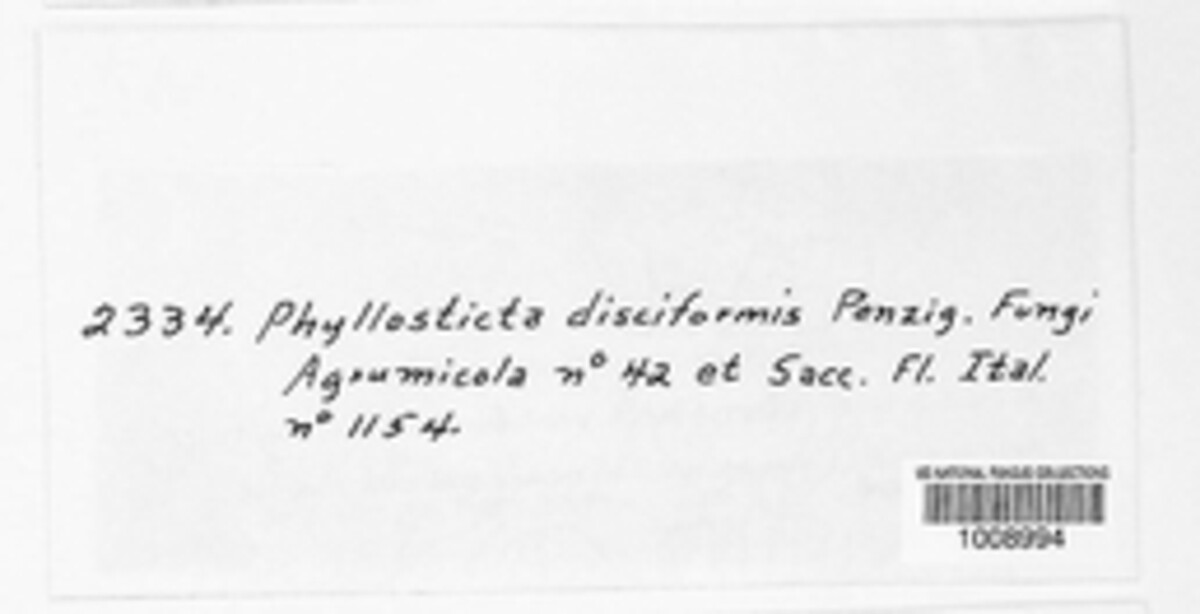 2334. Phyllosticta disciformis Penzig. Fungi
Agrumicola nº 42 et Sacc. Fl. Ital.
nº 1154.
US NATIONAL FUNGUS COLLECTIONS
1008994